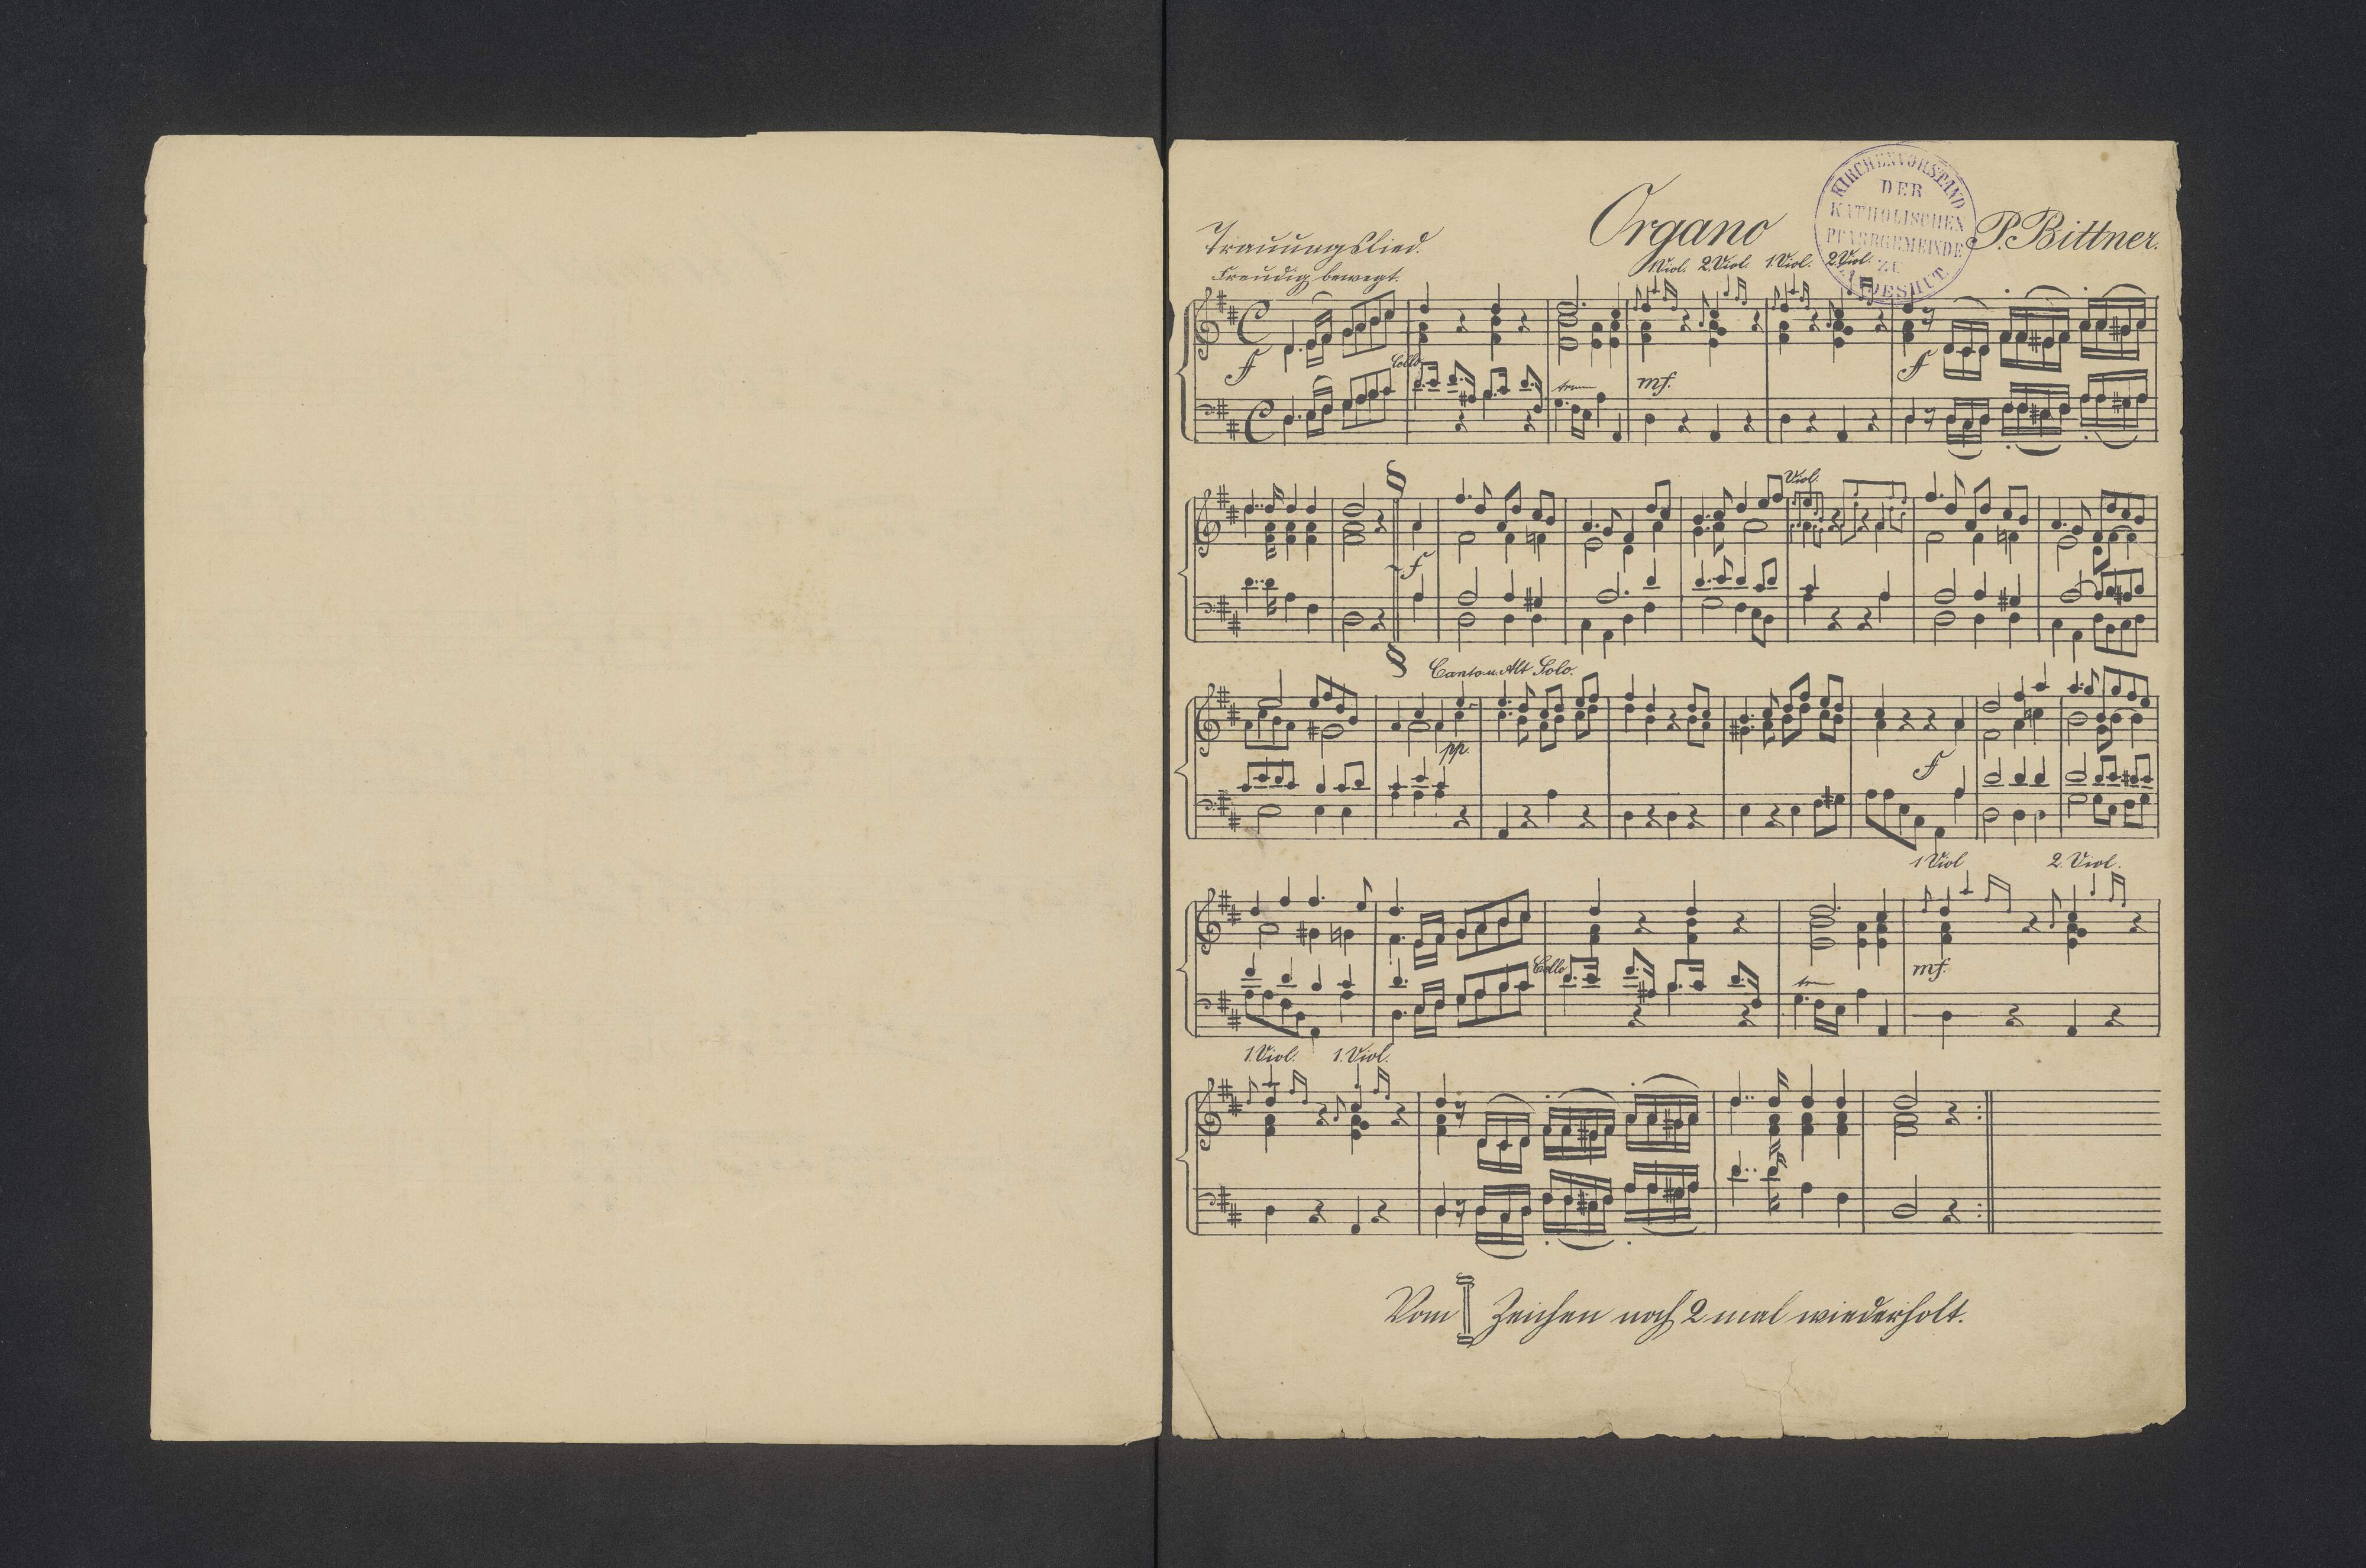 KIRCHENVORSTAND
DER
KATHOLISCHEN
PFARRGEMEINDE
ZU
LANDESHUT
Organo
P. Bittner.
Trauungslied.
Freudig bewegt.
1.Viol. 2.Viol. 1.Viol. 2.Viol.
f
Cello
mf.
f
Viol.
f
Canto u. Alt Solo.
pp.
f
1 Viol
2. Viol.
Cello
mf.
1. Viol.
1. Viol.
Vom Zeichen noch 2 mal wiederholt.